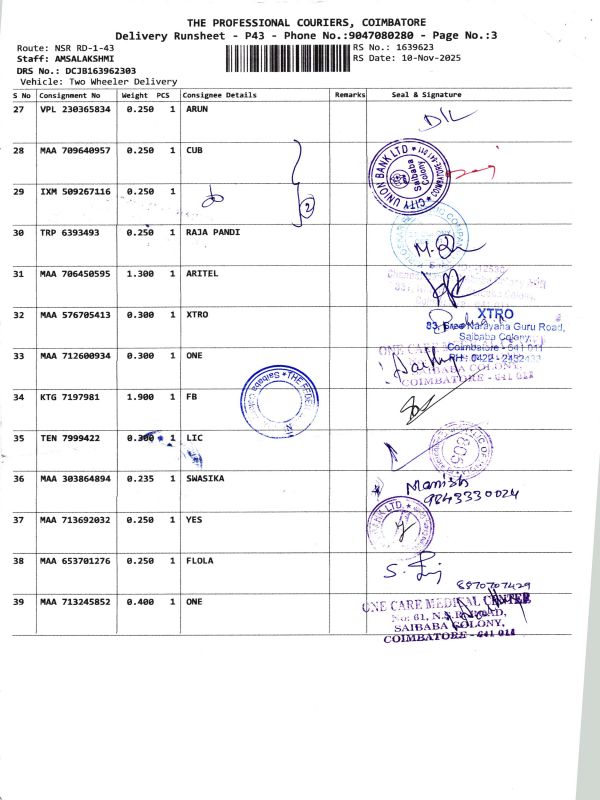 THE PROFESSIONAL COURIERS, COIMBATORE
Delivery Runsheet - P43 - Phone No.:9047080280 - Page No.:3
Route: NSR RD-1-43 RS No.: 1639623
Staff: AMSALAKSHMI RS Date: 10-Nov-2025
DRS No.: DCJB163962303
Vehicle: Two Wheeler Delivery
S No Consignment No Weight PCS Consignee Details Remarks Seal & Signature
27 VPL 230365834 0.250 1 ARUN
28 MAA 709640957 0.250 1 CUB
CITY UNION BANK LTD
Saibaba
Colony
29 IXM 509267116 0.250 1
2
30 TRP 6393493 0.250 1 RAJA PANDI
31 MAA 706450595 1.300 1 ARITEL
32 MAA 576705413 0.300 1 XTRO
XTRO
83, Sree Narayana Guru Road,
Saibaba Colony,
Coimbatore - 641 011
PH: 0422 - 2432433
33 MAA 712600934 0.300 1 ONE
ONE CARE
SAIBABA COLONY,
COIMBATORE - 641 011
34 KTG 7197981 1.900 1 FB
35 TEN 7999422 0.300 1 LIC
36 MAA 303864894 0.235 1 SWASIKA
Manish
9843330024
37 MAA 713692032 0.250 1 YES
BANK LTD.
38 MAA 653701276 0.250 1 FLOLA
8870707429
39 MAA 713245852 0.400 1 ONE
ONE CARE MEDICAL CENTER
No: 61, N.S.R. ROAD,
SAIBABA COLONY,
COIMBATORE - 641 011